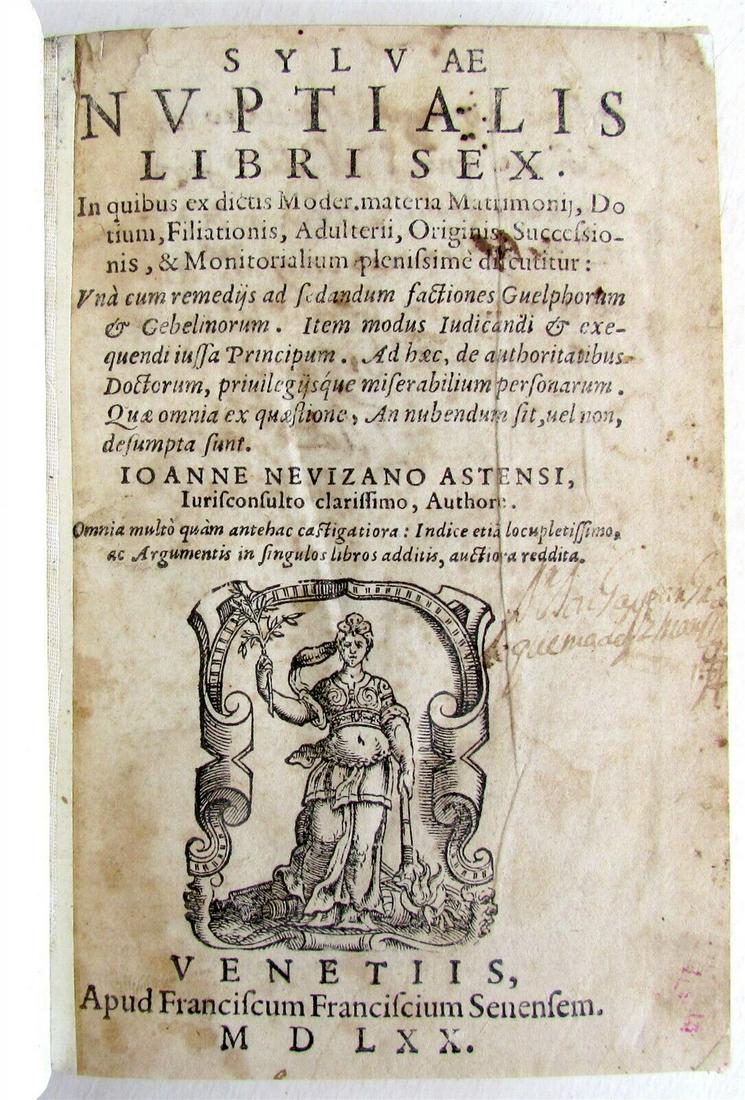 SYLVAE
NVPTIALIS
LIBRI SEX.
In quibus ex dictis Moder. materia Matrimonij, Do
tium, Filiationis, Adulterii, Originis, Successio-
nis, & Monitorialium plenissimè discutitur:
Vnà cum remedijs ad sedandum factiones Guelphorum
& Gebelinorum. Item modus Iudicandi & exe-
quendi iussa Principum. Ad hæc, de authoritatibus
Doctorum, priuilegijsq́ue miserabilium personarum.
Quæ omnia ex quæstione, An nubendum sit, uel non,
desumpta sunt.
IOANNE NEVIZANO ASTENSI,
Iurisconsulto clarissimo, Authore.
Omnia multò quàm antehac castigatiora: Indice etiā locupletissimo,
ac Argumentis in singulos libros additis, auctiora reddita.
VENETIIS,
Apud Franciscum Franciscium Senensem.
M D LXX.